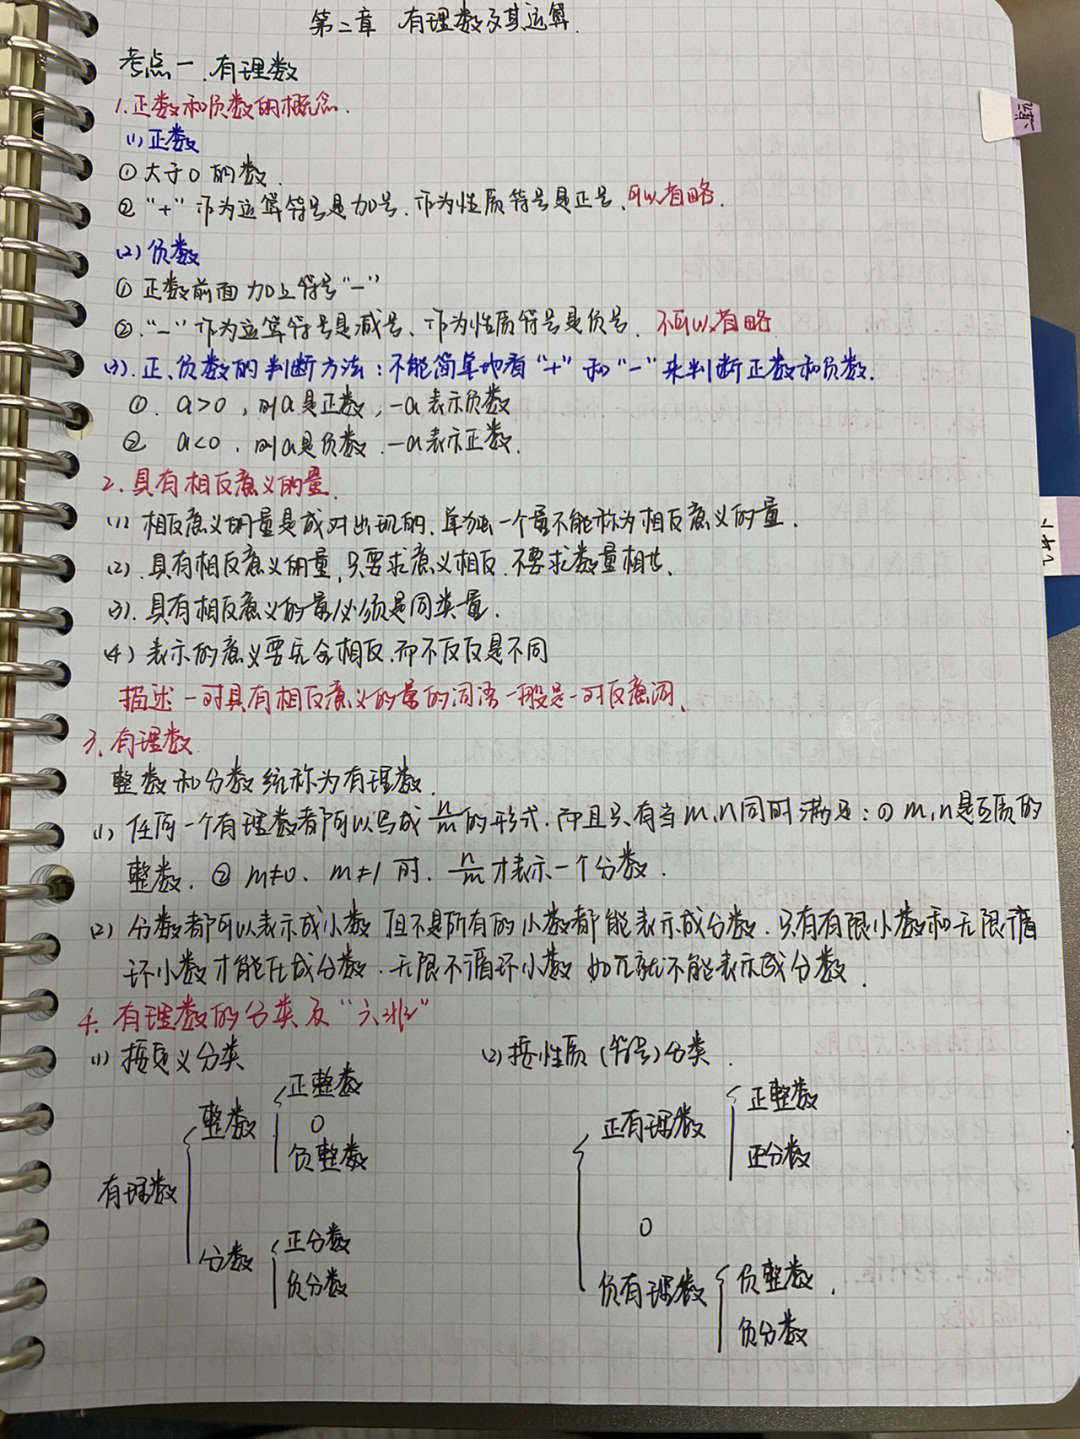 第二章 有理数及其运算.
考点一.有理数
1.正数和负数的概念.
(1)正数
①大于0的数.
②"+"作为运算符号是加号.作为性质符号是正号.可以省略.
(2)负数
①正数前面加上符号"-"
②."-"作为运算符号是减号.作为性质符号是负号.不可以省略
(3).正、负数的判断方法:不能简单地看"+"和"-"来判断正数和负数.
①. a>0,则a是正数,-a表示负数
② a<0.则a是负数.-a表示正数.
2.具有相反意义的量.
(1)相反意义的量是成对出现的.单独一个量不能称为相反意义的量.
(2).具有相反意义的量,只要求意义相反.不要求数量相等.
(3).具有相反意义的量必须是同类量.
(4)表示的意义要完全相反.而不仅仅是不同
描述一对具有相反意义的量的词语一般是一对反意词.
3.有理数.
整数和分数统称为有理数.
(1)任何一个有理数都可以写成n/m的形式.而且只有当m,n同时满足:①m,n是互质的
整数.②m≠0、m≠1时.n/m才表示一个分数.
(2)分数都可以表示成小数 但不是所有的小数都能表示成分数.只有有限小数和无限循
环小数才能化成分数.无限不循环小数 如π就不能表示成分数.
4.有理数的分类及"六非"
(1)按定义分类 (2)按性质(符号)分类.
正整数 正整数
整数 0 正有理数
负整数 正分数
有理数
0
分数 正分数
负分数 负有理数 负整数.
负分数